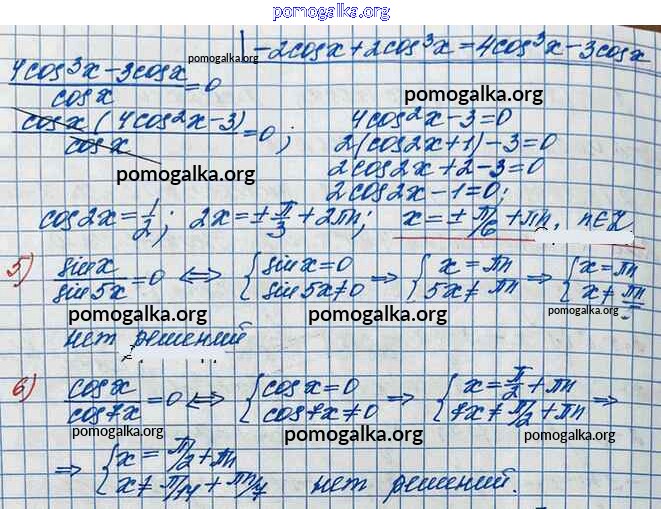 pomogalka.org
-2cosx+2cos³x=4cos³x-3cosx
4cos³x-3cosx/cosx=0 pomogalka.org
pomogalka.org
cosx(4cos²x-3)/cosx=0; 4cos²x-3=0
2(cos2x+1)-3=0
pomogalka.org 2cos2x+2-3=0
2cos2x-1=0;
cos2x=1/2; 2x=±π/3+2πn; x=±π/6+πn, n∈Z
5) sinx/sin5x=0 ⟺ {sinx=0 sin5x≠0 ⇒ {x=πn 5x≠πn ⇒ {x=πn x≠πn/
pomogalka.org pomogalka.org pomogalka.org
нет решений
6) cosx/cos7x=0 ⟺ {cosx=0 cos7x≠0 ⇒ {x=π/2+πn 7x≠π/2+πn ⇒
pomogalka.org pomogalka.org pomogalka.org
⇒ {x=π/2+πn x≠π/14+πn/7 нет решений.